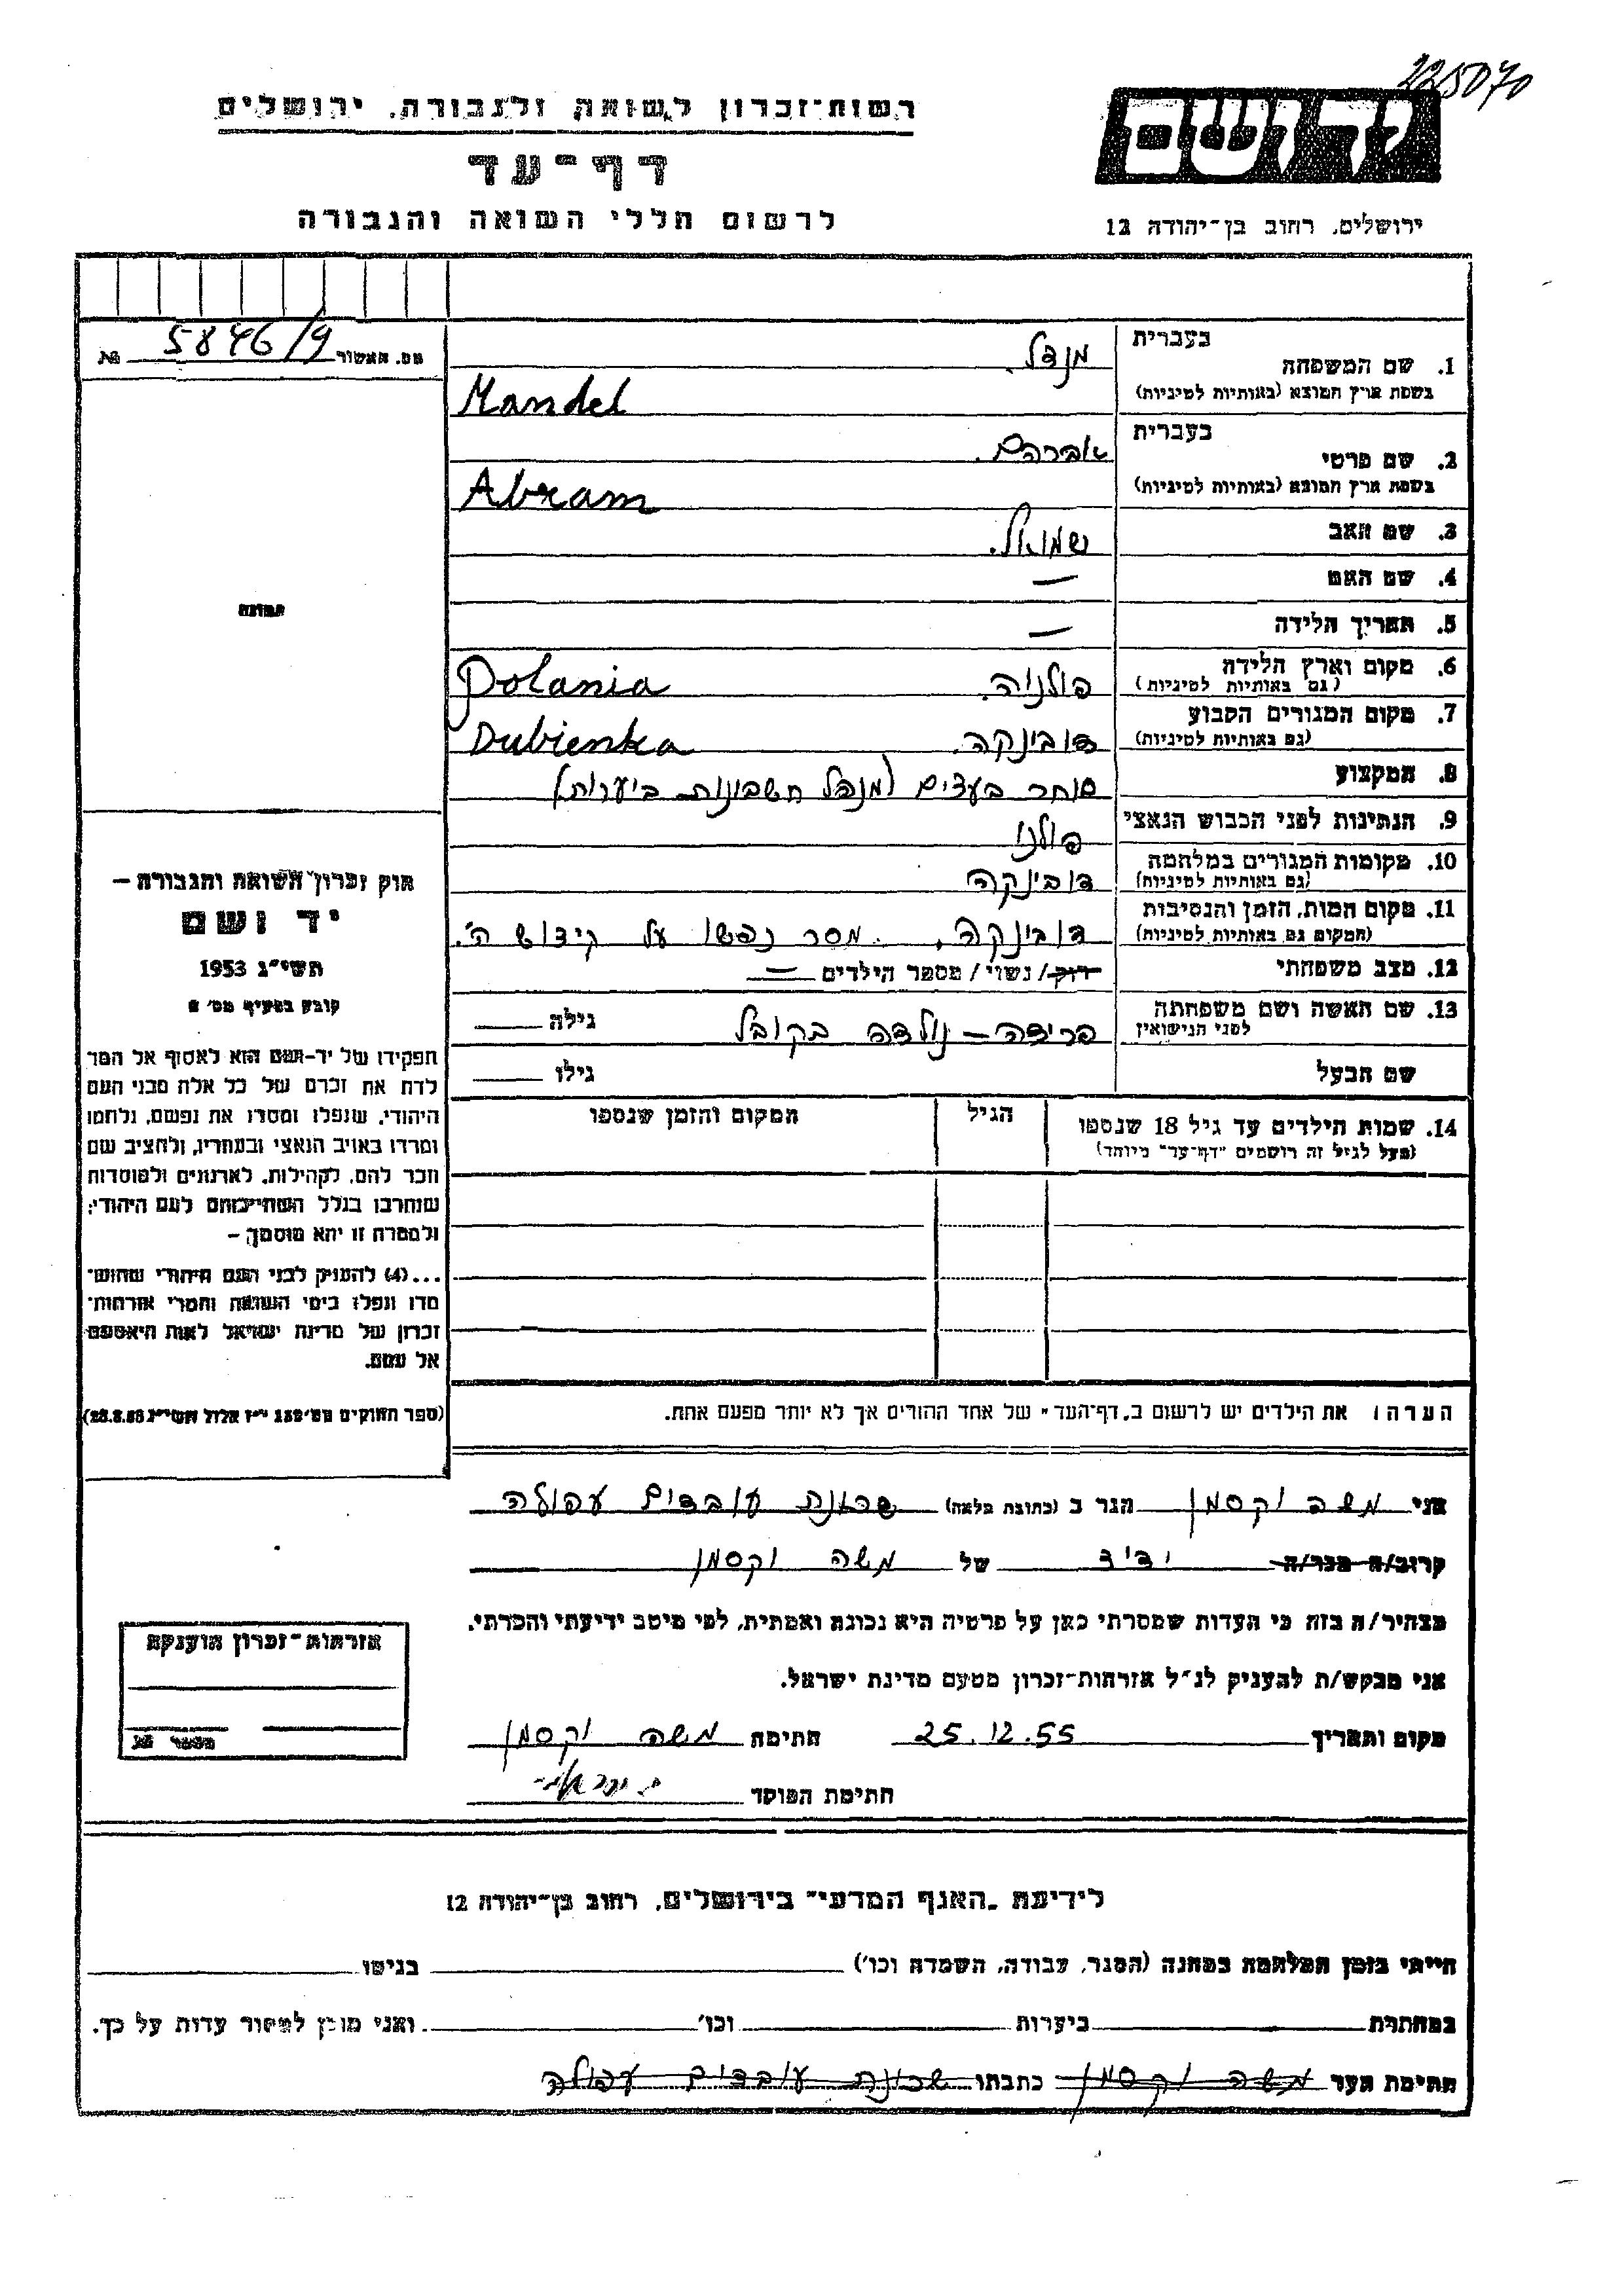 225070
יד ושם
רשות־זכרון לשואה ולגבורה, ירושלים
דף־עד
לרשום חללי השואה והגבורה
ירושלים, רחוב בן־יהודה 12
מס. האשור 5846/9 №
תמונה
חוק זכרון השואה והגבורה –
יד ושם
תשי״ג 1953
קובע בסעיף מס׳ 2
תפקידו של יד-ושם הוא לאסוף אל המו־
לדת את זכרם של כל אלה מבני העם
היהודי, שנפלו ומסרו את נפשם, נלחמו
ומרדו באויב הנאצי ובעוזריו, ולהציב שם
וזכר להם, לקהילות, לארגונים ולמוסדות
שנחרבו בגלל השתייכותם לעם היהודי;
ולמטרה זו יהא מוסמך –
...(4) להעניק לבני העם היהודי שהוש־
מדו ונפלו בימי השואה והמרי אזרחות־
זכרון של מדינת ישראל לאות היאספם
אל עמם.
(ספר החוקים מס׳ 132 י״ז אלול תשי״ג 28.8.53)
1. שם המשפחה בעברית מנדל.
בשפת ארץ המוצא (באותיות לטיניות) Mandel
2. שם פרטי בעברית אברהם.
בשפת ארץ המוצא (באותיות לטיניות) Abram
3. שם האב שמואל.
4. שם האם —
5. תאריך הלידה —
6. מקום וארץ הלידה פולניה. Polania
(גם באותיות לטיניות)
7. מקום המגורים הקבוע דובינקה. Dubienka
(גם באותיות לטיניות)
8. המקצוע סוחר בעצים (מנהל חשבונות ביערות)
9. הנתינות לפני הכבוש הנאצי פולני
10. מקומות המגורים במלחמה דובינקה
(גם באותיות לטיניות)
11. מקום המות, הזמן והנסיבות דובינקה, מסר נפשו על קידוש ה׳.
(המקום גם באותיות לטיניות)
12. מצב משפחתי רוק/נשוי/מספר הילדים —
13. שם האשה ושם משפחתה פרידה – נולדה בקובל גילה
לפני הנישואין
שם הבעל גילו
14. שמות הילדים עד גיל 18 שנספו הגיל המקום והזמן שנספו
(מעל לגיל זה רושמים ״דף־עד״ מיוחד)
הערה: את הילדים יש לרשום ב„דף־העד״ של אחד ההורים אך לא יותר מפעם אחת.
אני משה וקסמן הגר ב (כתובת מלאה) שכונת עובדים עפולה
קרוב/ה מכר/ה ידיד של משה וקסמן
מצהיר/ה בזה כי העדות שמסרתי כאן על פרטיה היא נכונה ואמתית, לפי מיטב ידיעתי והכרתי.
אני מבקש/ת להעניק לנ״ל אזרחות־זכרון מטעם מדינת ישראל.
מקום ותאריך 25.12.55 חתימה משה וקסמן
חתימת המוסד
אזרחות־זכרון הוענקה
מספר №
לידיעת „האגף המדעי״ בירושלים, רחוב בן־יהודה 12
הייתי בזמן המלחמה במחנה (הסגר, עבודה, השמדה וכו׳) בגיטו
במחתרת ביערות וכו׳ ואני מוכן למסור עדות על כך.
חתימת העד משה וקסמן כתבתו שכונת עובדים עפולה